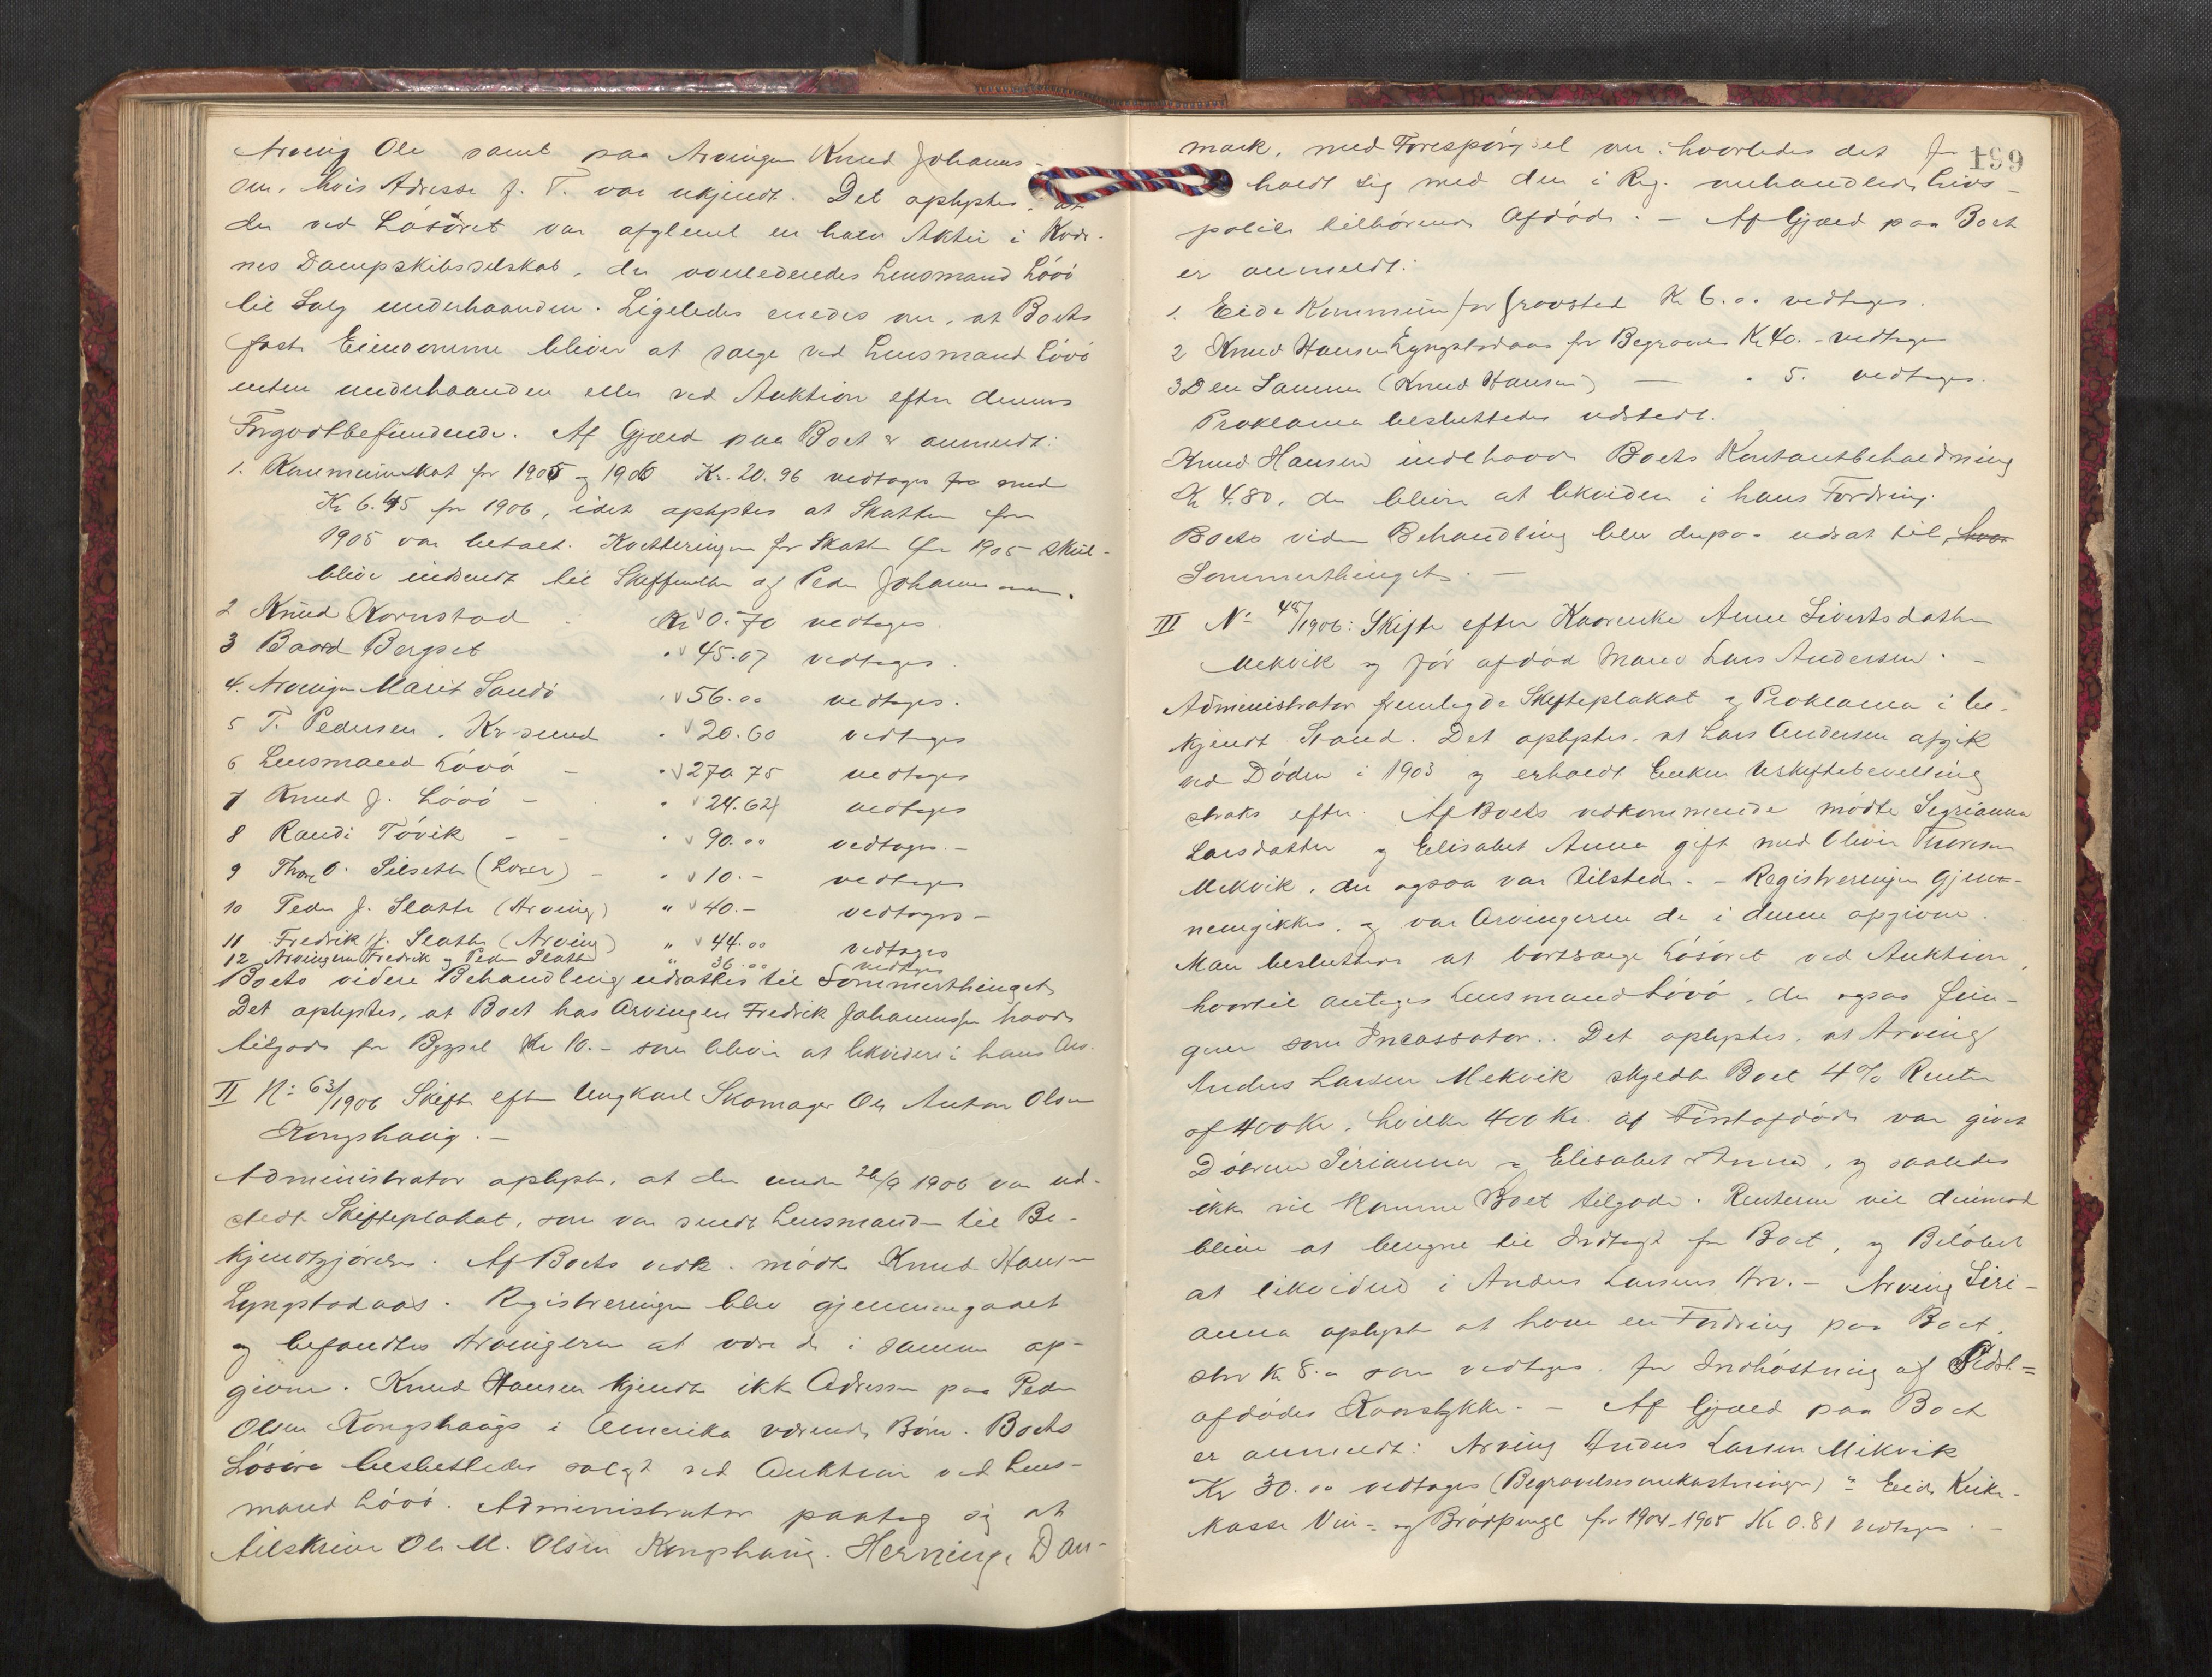 Arving Ole samt paa Arvingen Knud Johanns-
sen, hvis Adresse f. T. var ukjendt. Det oplystes, at
der ved Løsøret var afglemt en halv Aktie i Kvær-
nes Dampskibsselskab, der overlededes Lensmand Løvø
til Salg underhaanden. Ligeledes enedes om, at Boets
faste Eiendomme bliver at sælge ved Lensmand Løvø
enten underhaanden eller ved Auktion efter dennes
Forgodtbefindende. Af Gjæld paa Boet er anmeldt:
1. Kommuneskat for 1905 og 1906 Kr. 20.96 vedtages for med
Kr 6.45 for 1906, idet oplystes at Skatten for
1905 var betalt. Kvitteringen for Skatten for 1905 skul-
blive indsendt til Skifteretten af Peder Johannessen.
2 Knud Kornstad Kr 0.70 vedtages
3 Baard Bergset " 45.07 vedtages.
4. Arvingen Marit Sandø " 56.00 vedtages.
5 T. Pedersen, Kr-sund " 20.60 vedtages
6 Lensmand Løvø - " 270 75 vedtages
7 Knud J. Løvø - " 24.64 vedtages
8 Randi Tøvik - - " 90.00 vedtages.-
9 Thore O. Silseth (Lærer) - " 10.- vedtages
10 Peder J. Slatte (Arving) " 40.- vedtages-
11 Fredrik J. Slatte (Arving) " 44.00 vedtages
12 Arvingerne Fredrik og Peder Slatte " 36.00 vedtages
Boets videre Behandling udsattes til Sommerthinget.
Det oplystes, at Boet hos Arvingen Fredrik Johannessen havde
tilgode for Bygsel Kr 10.- som bliver at likvidere i hans Arv.
II No 63/1906 Skifte efter Ungkarl Skomager Ole Anton Olsen
Kongshaug.-
Administrator oplyste, at der under 26/9 1906 var ud-
stedt Skifteplakat, som var sendt Lensmanden til Be-
kjendtgjørelse. Af Boets vedk. mødte Knud Hansen
Lyngstadaas. Registreringen blev gjennemgaaet
og befandtes Arvingerne at være de i samme op-
givne. Knud Hansen kjendte ikke Adressen paa Peder
Olsen Kongshaugs i Amerika værende Børn. Boets
Løsøre besluttedes solgt ved Auktion ved Lens-
mand Løvø. Administrator paatog sig at
tilskrive Ole M. Olsen Kongshaug, Herning, Dan-
199
mark, med Forespørgsel om, hvorledes det for
holdt sig med den i Reg. omhandlede Livs-
police tilhørende Afdøde. - Af Gjæld paa Boet
er anmeldt:
1. Eide Kommune for Gravsted Kr 6.00 vedtages.
2 Knud Hansen Lyngstadaas for Begravelse Kr 40.- vedtages
3 Den Samme (Knud Hansen) — " 5. vedtages.
Proklama besluttedes udstedt.
Knud Hansen indehavde Boets Kontantbeholdning
Kr 4.80, der bliver at likvidere i hans Fordring.
Boets videre Behandling blev derpaa udsat til hvor
Sommerthinget. -
III No 48/1906: Skifte efter Kaarenke Anne Sivertsdatter
Mekvik og før afdød Mand Lars Andersen. -
Administrator fremlagde Skifteplakat og Proklama i be-
kjendt Stand. Det oplystes, at Lars Andersen afgik
ved Døden i 1903 og erholdt Enken Uskiftebevilling
straks efter. Af Boets vedkommende mødte Segrianna
Larsdatter og Elisabet Anna gift med Oliver Thoresen
Mekvik, der ogsaa var tilstede. - Registreringen gjen-
nemgikkes, og var Arvingerne de i denne opgivne.
Man besluttedes at bortsælge Løsøret ved Auktion,
hvortil antages Lensmand Løvø, der ogsaa fun-
gerer som Incassator. Det oplystes, at Arving
Anders Larsen Mekvik skyldte Boet 4% Renter
af 400 Kr, hvilke 400 Kr. af Førstafdøde var givet
Døtrene Sirianna og Elisabet Anna, og saaledes
ikke vil komme Boet tilgode. Renterne vil derimod
blive at beregne til Indtægt for Boet, og Beløbet
at likvidere i Anders Larsens Arv. - Arving Siri-
anna oplyste at have en Fordring paa Boet
stor Kr 8.00 som vedtages for Indhøstning af Sidst-
afdødes Kaarstykke. - Af Gjæld paa Boet
er anmeldt: Arving Anders Larsen Mekvik
Kr 30.00 vedtages (Begravelsesomkostninger) " Eide Kirke-
kasse Vin- og Brødpenge for 1904-1905 Kr 0.81 vedtages. -